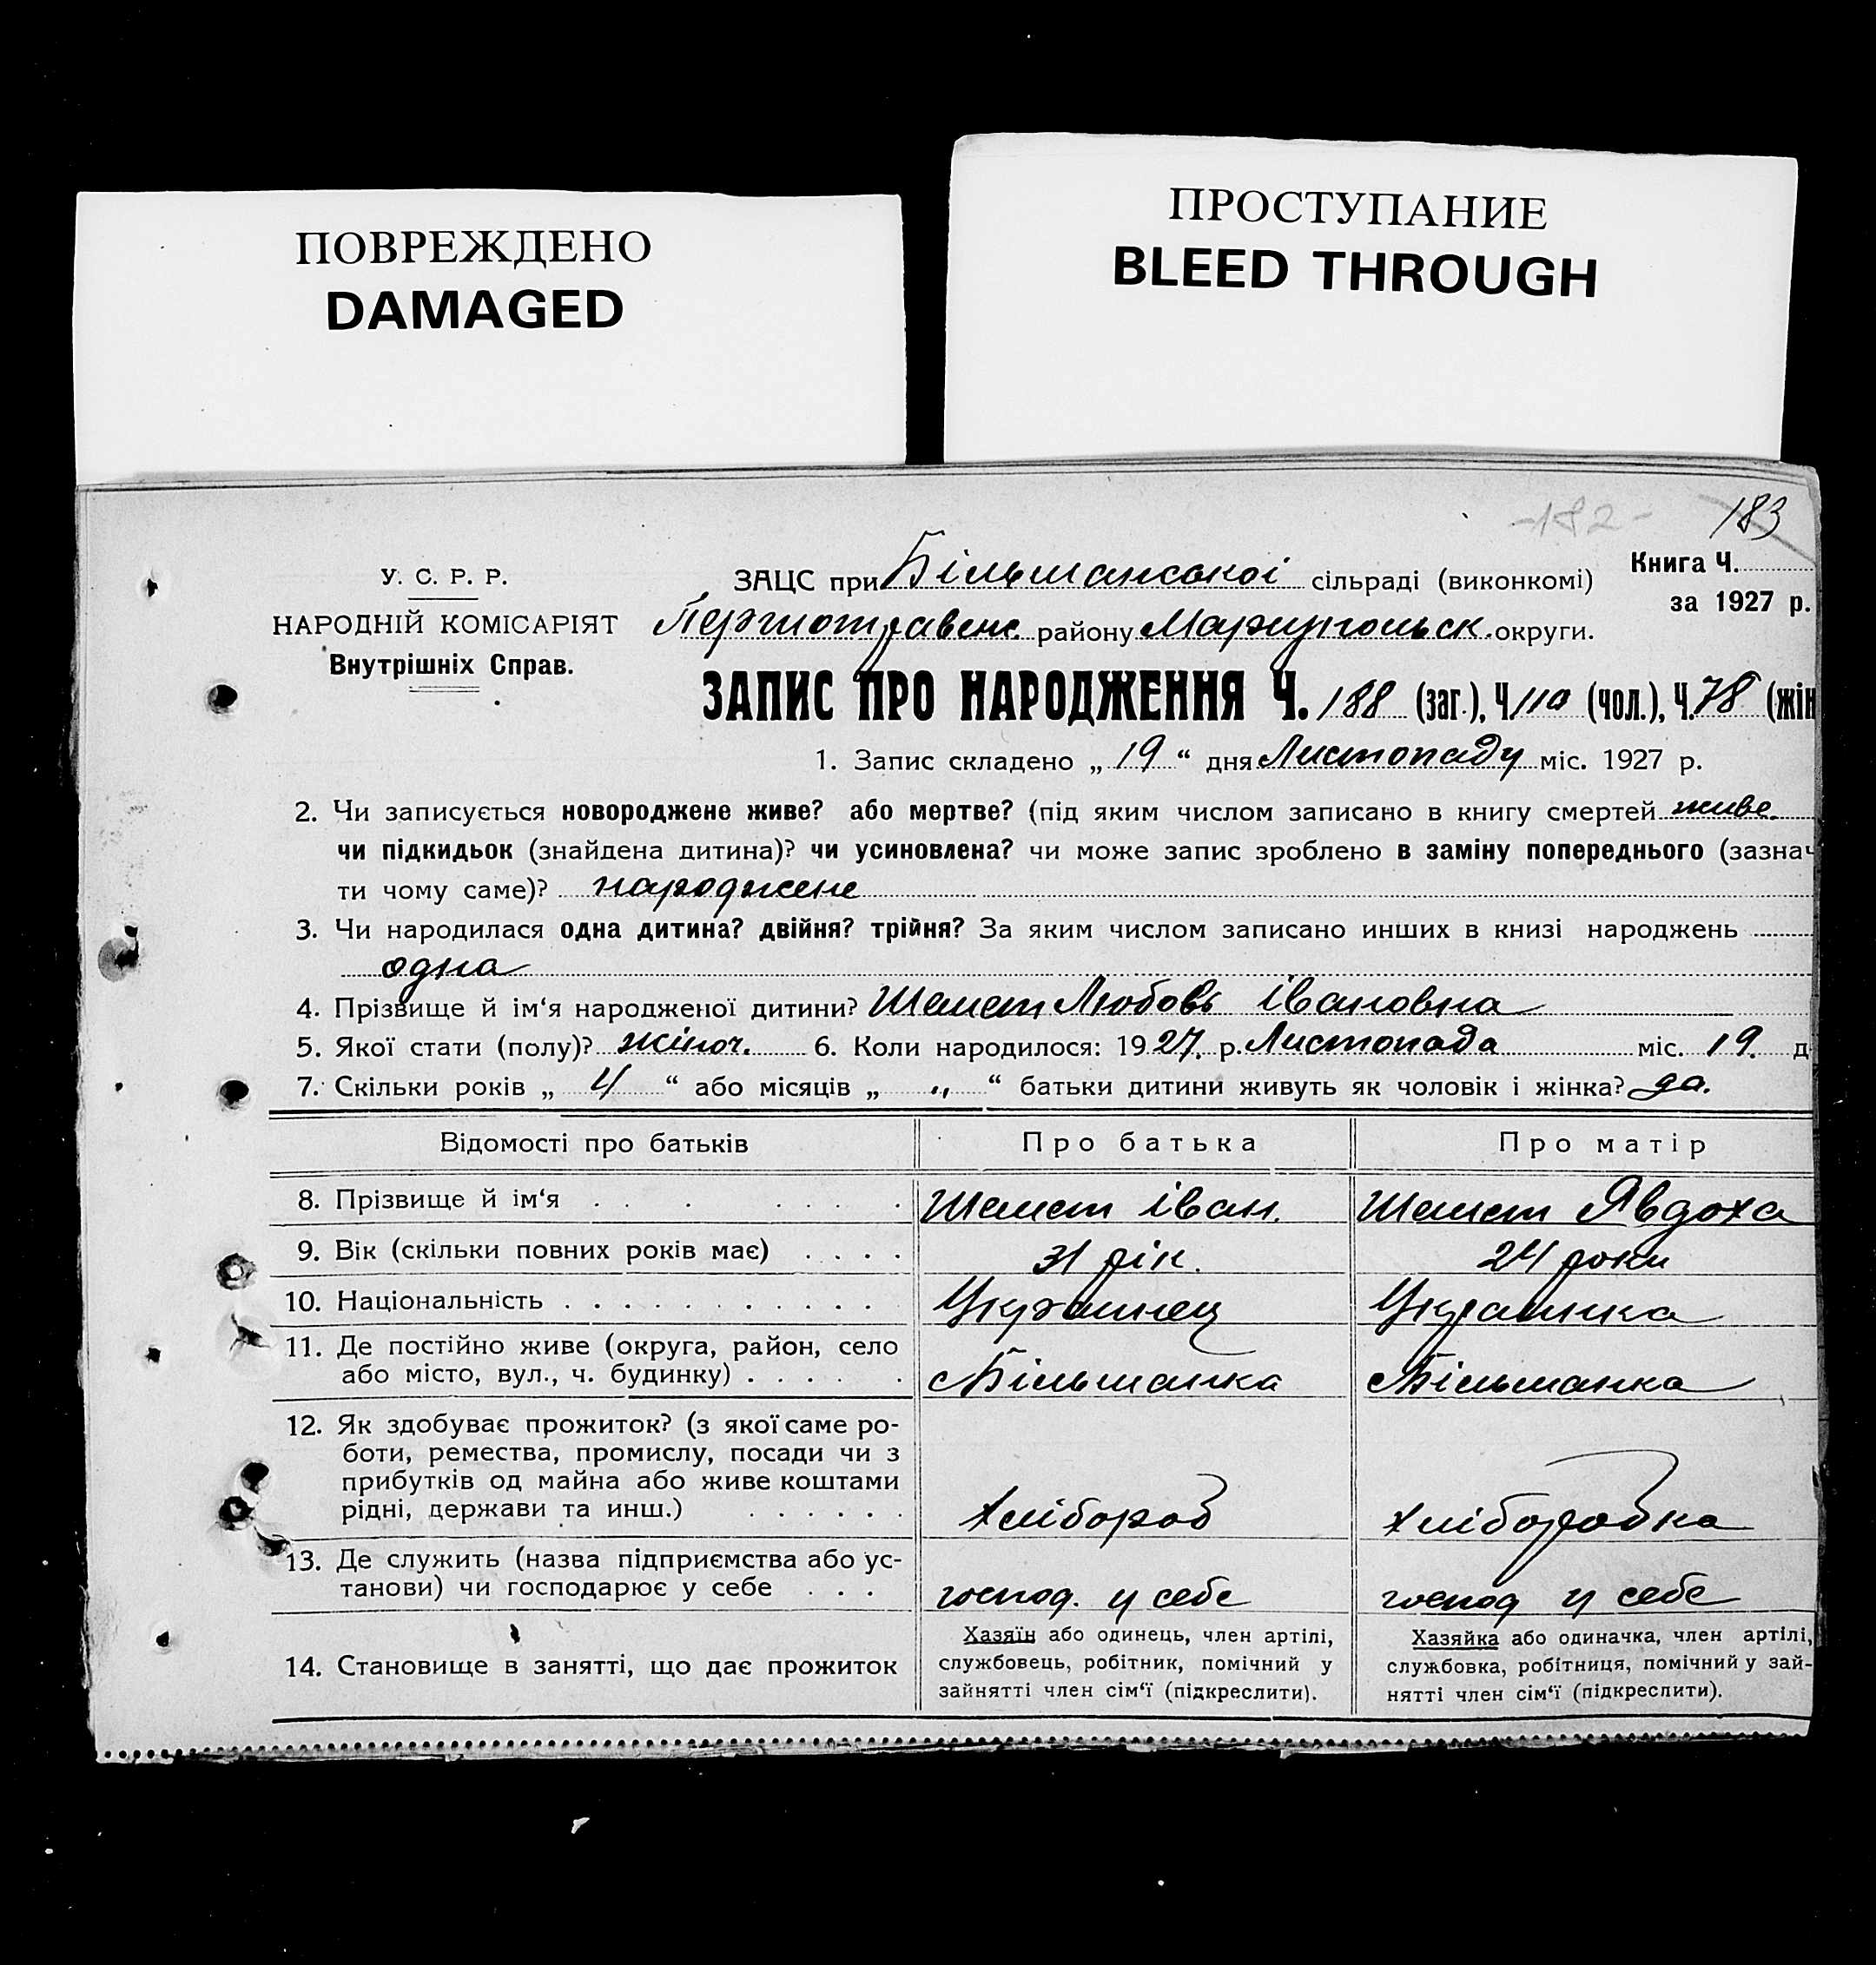 ПОВРЕЖДЕНО
DAMAGED
ПРОСТУПАНИЕ
BLEED THROUGH
-182- 183
У. С. Р. Р.
НАРОДНІЙ КОМІСАРІЯТ
Внутрішніх Справ.
ЗАЦС при Більшанської сільраді (виконкомі)
Книга Ч.
за 1927 р.
Першотравенс. району Маріупольск. округи.
ЗАПИС ПРО НАРОДЖЕННЯ Ч. 188 (заг.), Ч. 110 (чол.), Ч. 78 (жін
1. Запис складено „ 19 “ дня Листопаду міс. 1927 р.
2. Чи записується новороджене живе? або мертве? (під яким числом записано в книгу смертей живе.
чи підкидьок (знайдена дитина)? чи усиновлена? чи може запис зроблено в заміну попереднього (зазнач
ти чому саме)? народжене
3. Чи народилася одна дитина? двійня? трійня? За яким числом записано инших в книзі народжень
одна
4. Прізвище й ім‘я народженої дитини? Шемет Любовь Івановна
5. Якої стати (полу)? жіноч. 6. Коли народилося: 1927. р. Листопада міс. 19. д
7. Скільки років „ 4 “ або місяців „ „ “ батьки дитини живуть як чоловік і жінка? да.
Відомості про батьків Про батька Про матір
8. Прізвище й ім‘я Шемет Іван. Шемет Явдоха
9. Вік (скільки повних років має) 31 рік. 24 роки
10. Національність Украинец Украинка
11. Де постійно живе (округа, район, село
або місто, вул., ч. будинку) Більшанка Більшанка
12. Як здобуває прожиток? (з якої саме ро-
боти, ремества, промислу, посади чи з
прибутків од майна або живе коштами
рідні, держави та инш.) Хлібороб Хлібаробка
13. Де служить (назва підприємства або ус-
танови) чи господарює у себе господ. у себе господ у себе
14. Становище в занятті, що дає прожиток
Хазяїн або одинець, член артілі,
службовець, робітник, помічний у
зайнятті член сім‘ї (підкреслити).
Хазяйка або одиначка, член артілі,
службовка, робітниця, помічний у зай-
нятті член сім‘ї (підкреслити).